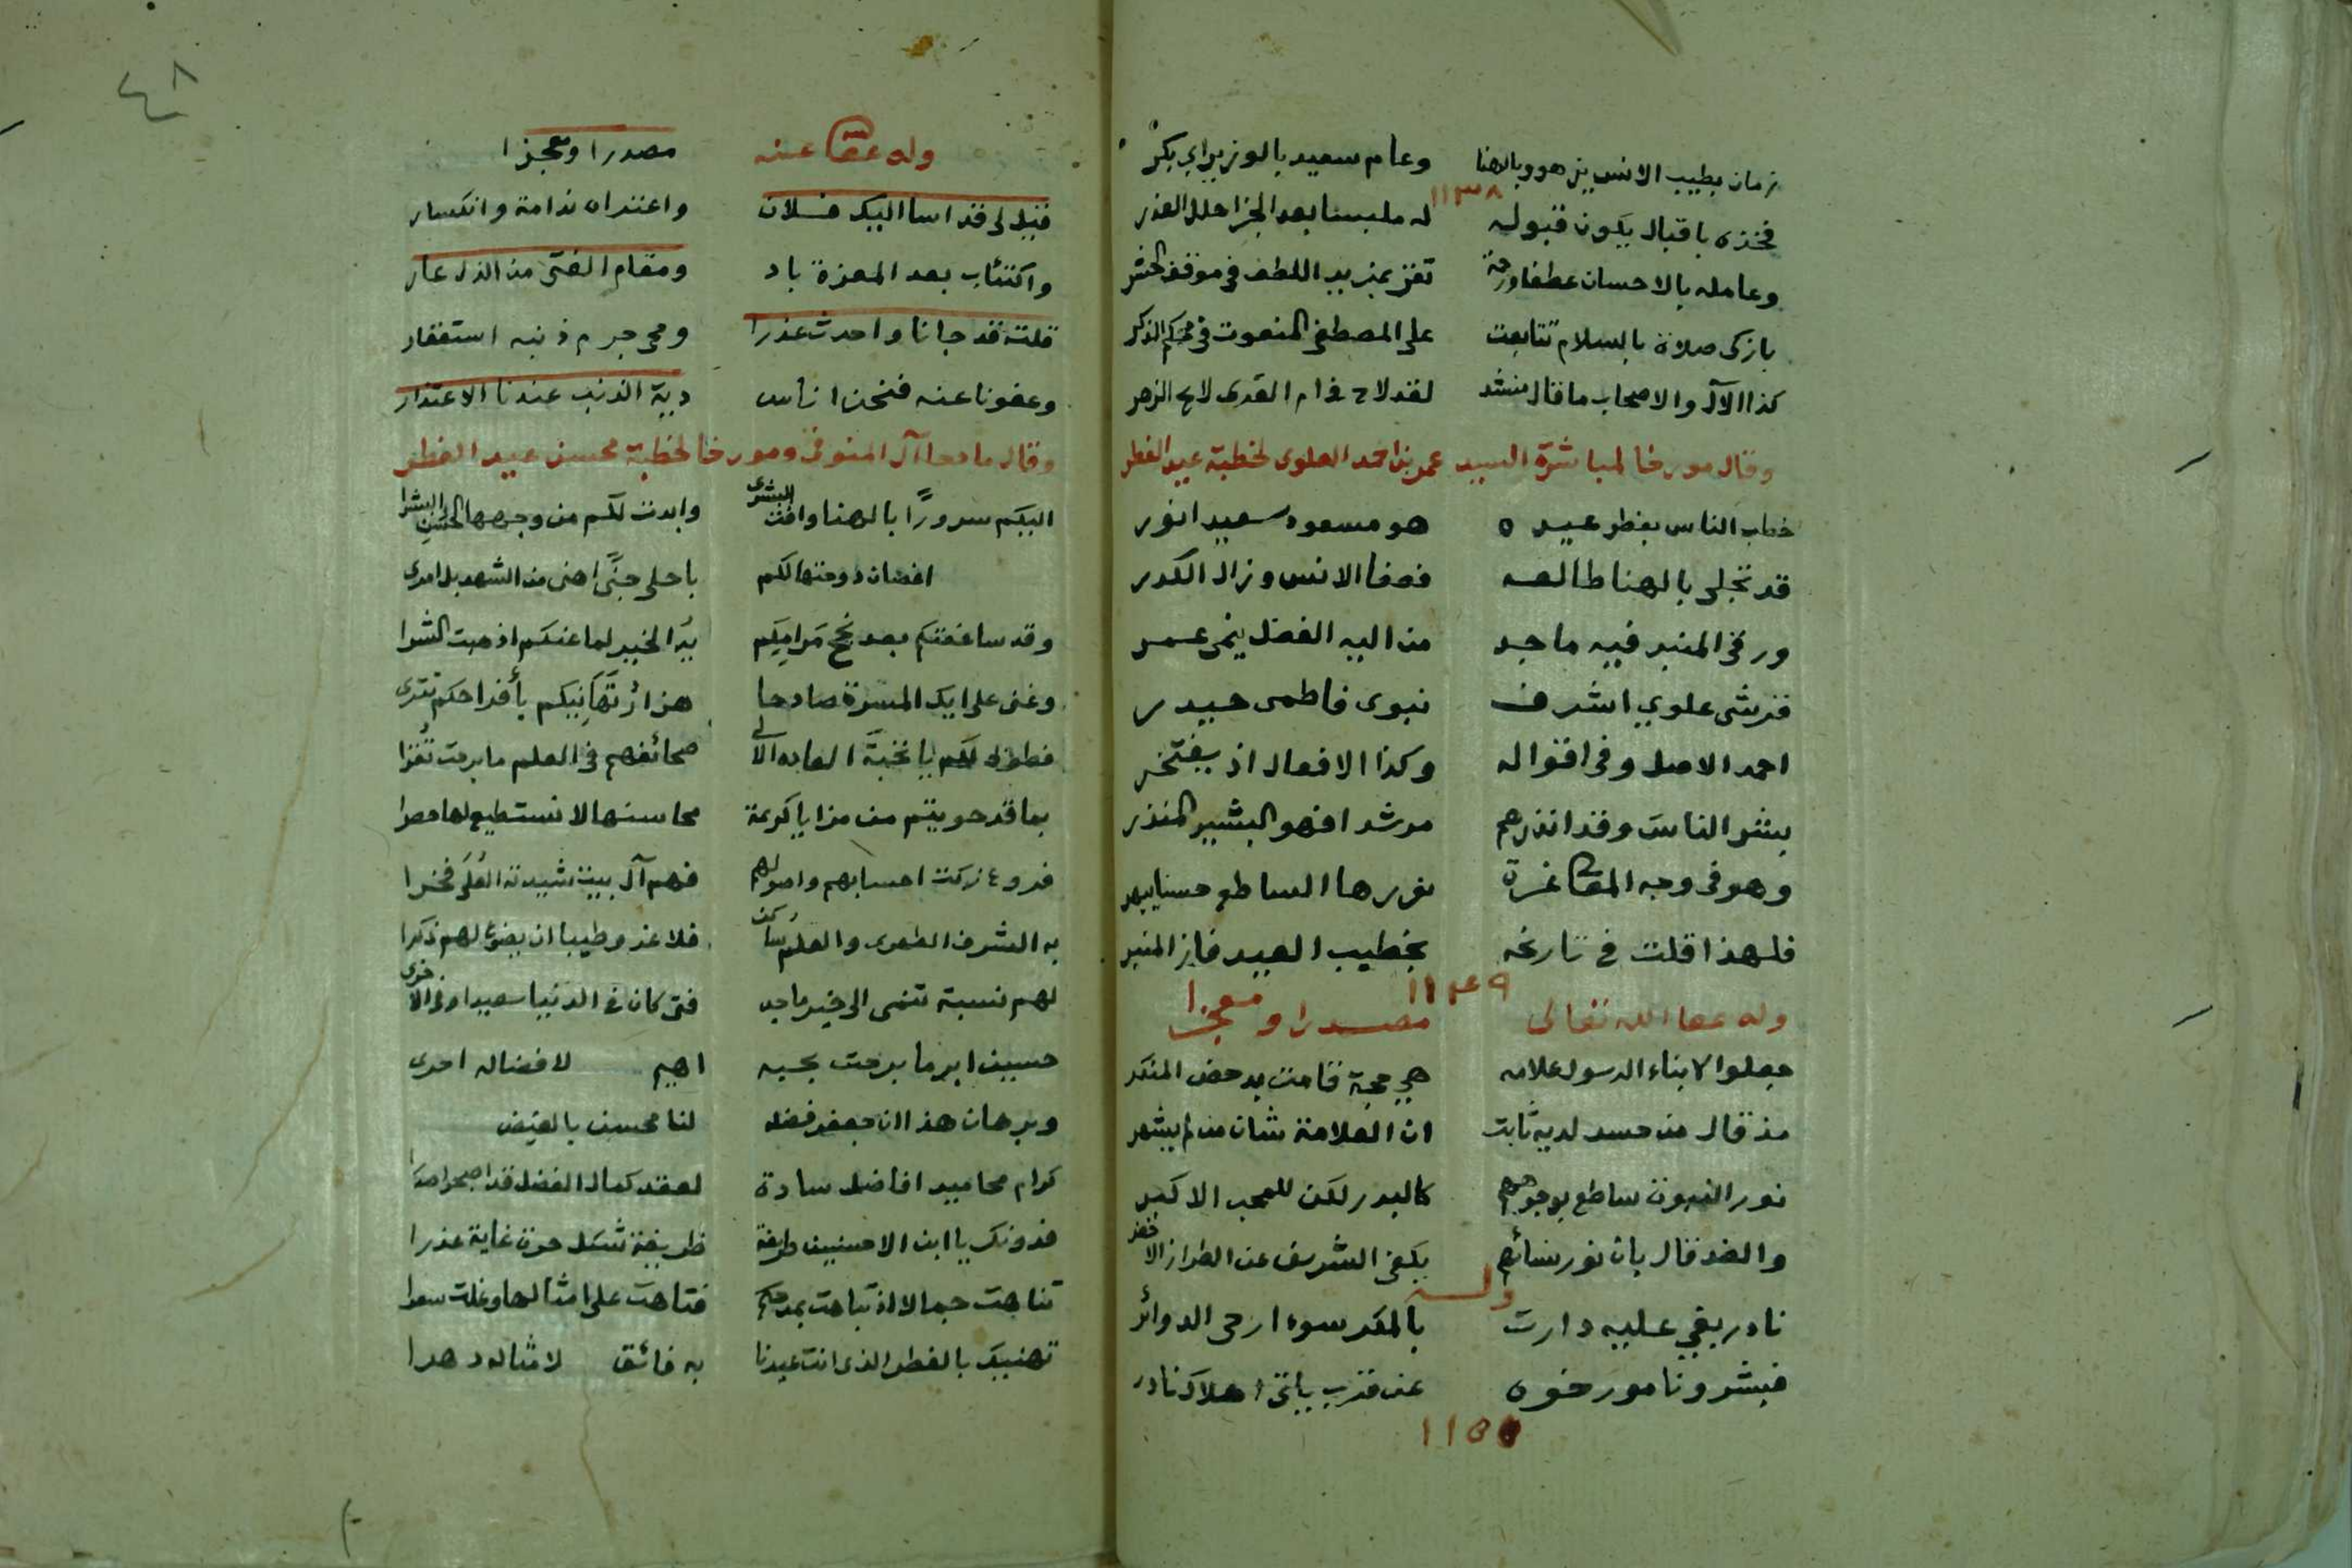 زمان بطيب الانس يزهو وبالهنا وعام سعيد بالوزير ابي بكر
١١٣٨
فخذه باقبال يكون قبوله له ملبسنا بعد الجزا حلل العذر
وعامله بالاحسان عطفا ورحمة تفز بمزيد اللطف في موقف الحشر
بازكى صلاة بالسلام تتابعت على المصطفى المنعوت في محكم الذكر
كذا الآل والاصحاب ما قال منشد لقد لاح في ام القرى لايح الزهر
وقال مورخا لمباشرة السيد عمر بن احمد العلوى لخطبة عيد الفطر
خطب الناس بفطر عيده هو مسعود سعيد انور
قد تجلى بالهنا طالعه فصفا الانس وزال الكدر
ورقى المنبر فيه ماجد من اليه الفضل ينمى عمر
قرشى علوي اشرف نبوى فاطمى حيدر
احمد الاصل وفى اقواله وكذا الافعال اذ يفتخر
بشر الناس وقد انذرهم مرشد افهو البشير المنذر
وهو فى وجه المعالى غرة نورها الساطع حسنا يبهر
فلهذا قلت في تاريخه بخطيب العيد فاز المنبر
١١٤٩
وله عفا الله تعالى مصدرا ومعجزا
جعلوا لابناء الرسول علامه هي حجة قامت بدحض المنكر
مذ قال من حسد لديه ثابت ان العلامة شان من لم يشهر
نور النبوة ساطع بوجوههم كالبدر لكن للمحب الاكبر
والضد قال بان نور نسائهم يكفى الشريف عن الطراز الاخضر
وله
نادر بغي عليه دارت بالمكر سوء ارحى الدوائر
فبشرونا مورخوه عن قرب ياتى هلاك نادر
١١٥٥
٤٨
وله عفا عنه مصدرا ومعجزا
قيل لى قد اسا اليك فلان واعتراه ندامة وانكسار
واكتئاب بعد المعزة باد ومقام الفتى من الذل عار
قلت قد جانا واحدث عذرا ومحى جرم ذنبه استغفار
وعفونا عنه فنحن اناس دية الذنب عندنا الاعتذار
وقال مادحا آل المنوفى ومورخا لخطبة محسن عيد الفطر
اليكم سرورًا بالهنا وافت البشرى وابدت لكم من وجهها الحسن البشرا
اغصان دوحتها لكم باحلى جنًى اهنى من الشهد بل امرى
وقد ساعفتكم بعد نجح مرامكم يد الخير لما عنكم اذهبت الشرا
وغنى على ايك المسرة صادحا هزار تهانيكم بأفراحكم تترى
فطوبى لكم يا نخبة العابد الالى صحائفهم فى العلم ما برحت تُقرا
بما قد حويتم من مزايا كريمة محاسنها لا نستطيع لها حصرا
فروع زكت احسابهم واصولهم فهم آل بيت شيدته العُلى فخرا
به الشرف الطهرى والعلم ساكن فلا غرو طيبا ان يضوع لهم ذكرا
لهم نسبة تنمى الى خير ماجد فتى كان فى الدنيا سعيدا وفى الاخرى
حسين ابر ما برحت بحبه اهيم لافضاله احرى
وبرهان هذا ان جعفر فضله لنا محسن بالفيض
كرام محاميد افاضل سادة لعقد كمال الفضل قد اصبحوا صدرا
فدونك يا ابن الاحسنين طريفة ظريفة شكل حرة غاية عذرا
تناهت جمالا اذ تباهت بمدحكم فتاهت على امثالها وغلت سعرا
تهنيك بالفطر الذى انت عيدنا به فائق لامثاله دهرا